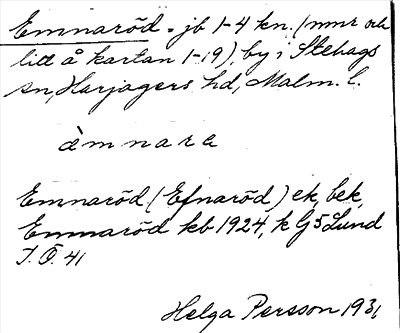 Emnaröd - jb 1-4 kn. (nmr och
litt å kartan 1-19), by i Stehags
sn, Harjagers hd, Malm. l.
èmnara
Emnaröd (Efnaröd) ek, bek,
Emmaröd kb 1924, k Gj5 Lund
J.Ö. 41
Helga Persson 1931